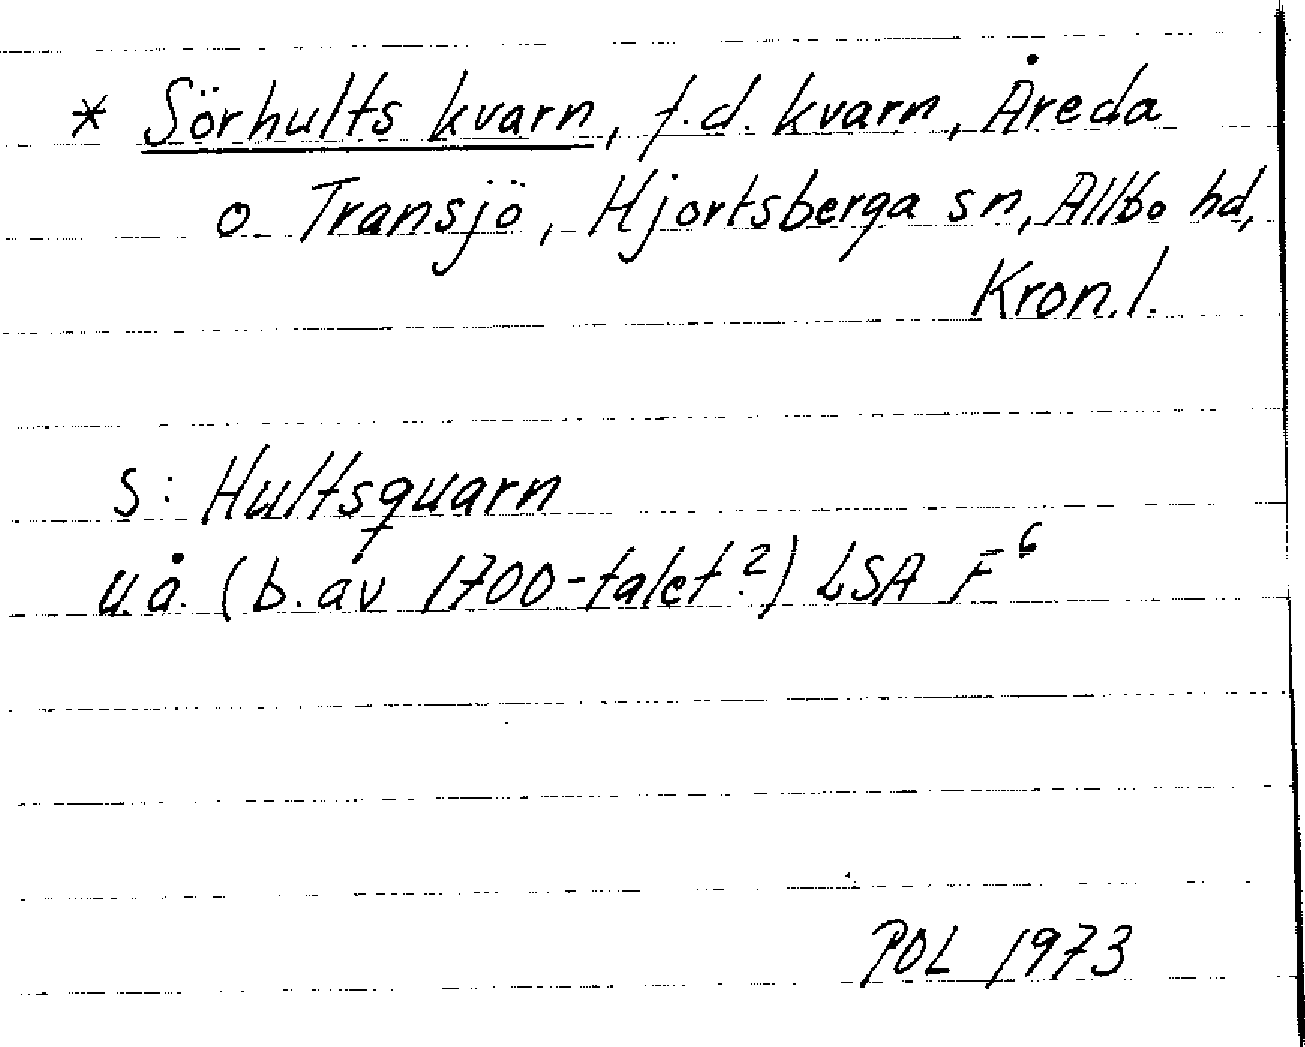 * Sörhults kvarn, f.d. kvarn, Åreda
o Transjö, Hjortsberga sn, Allbo hd,
Kron. l.
S: Hultsquarn
u.å. (b. av 1700-talet?) LSA F⁶
POL 1973